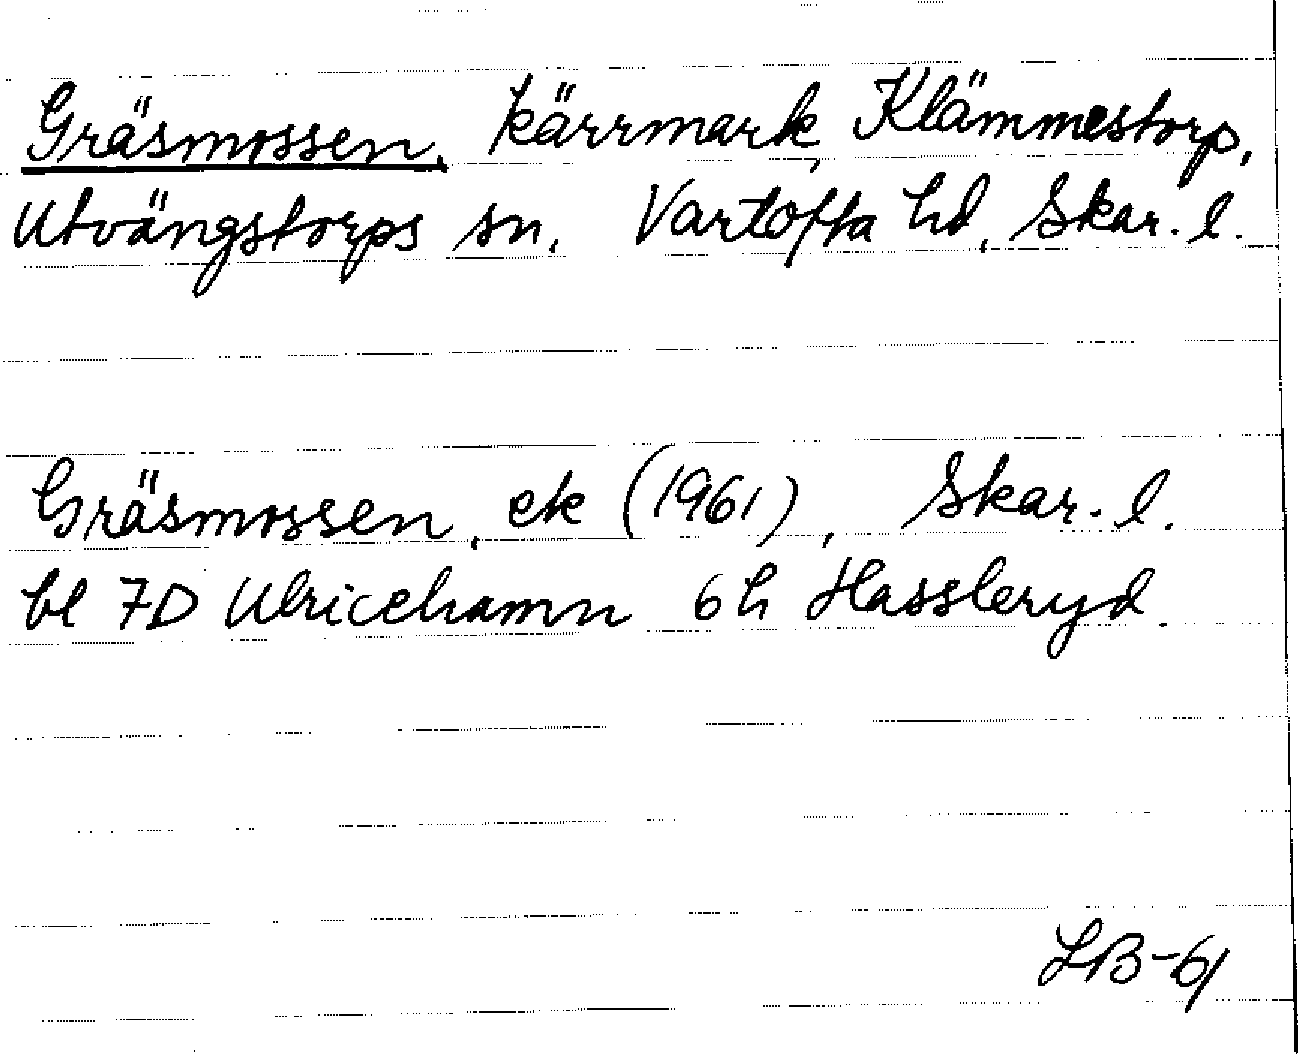 Gräsmossen, kärrmark, Klämmestorp,
Utvängstorps sn, Vartofta hd, Skar. l.
Gräsmossen, ek (1961), Skar. l.
bl 7D Ulricehamn 6h Hassleryd.
LB-61